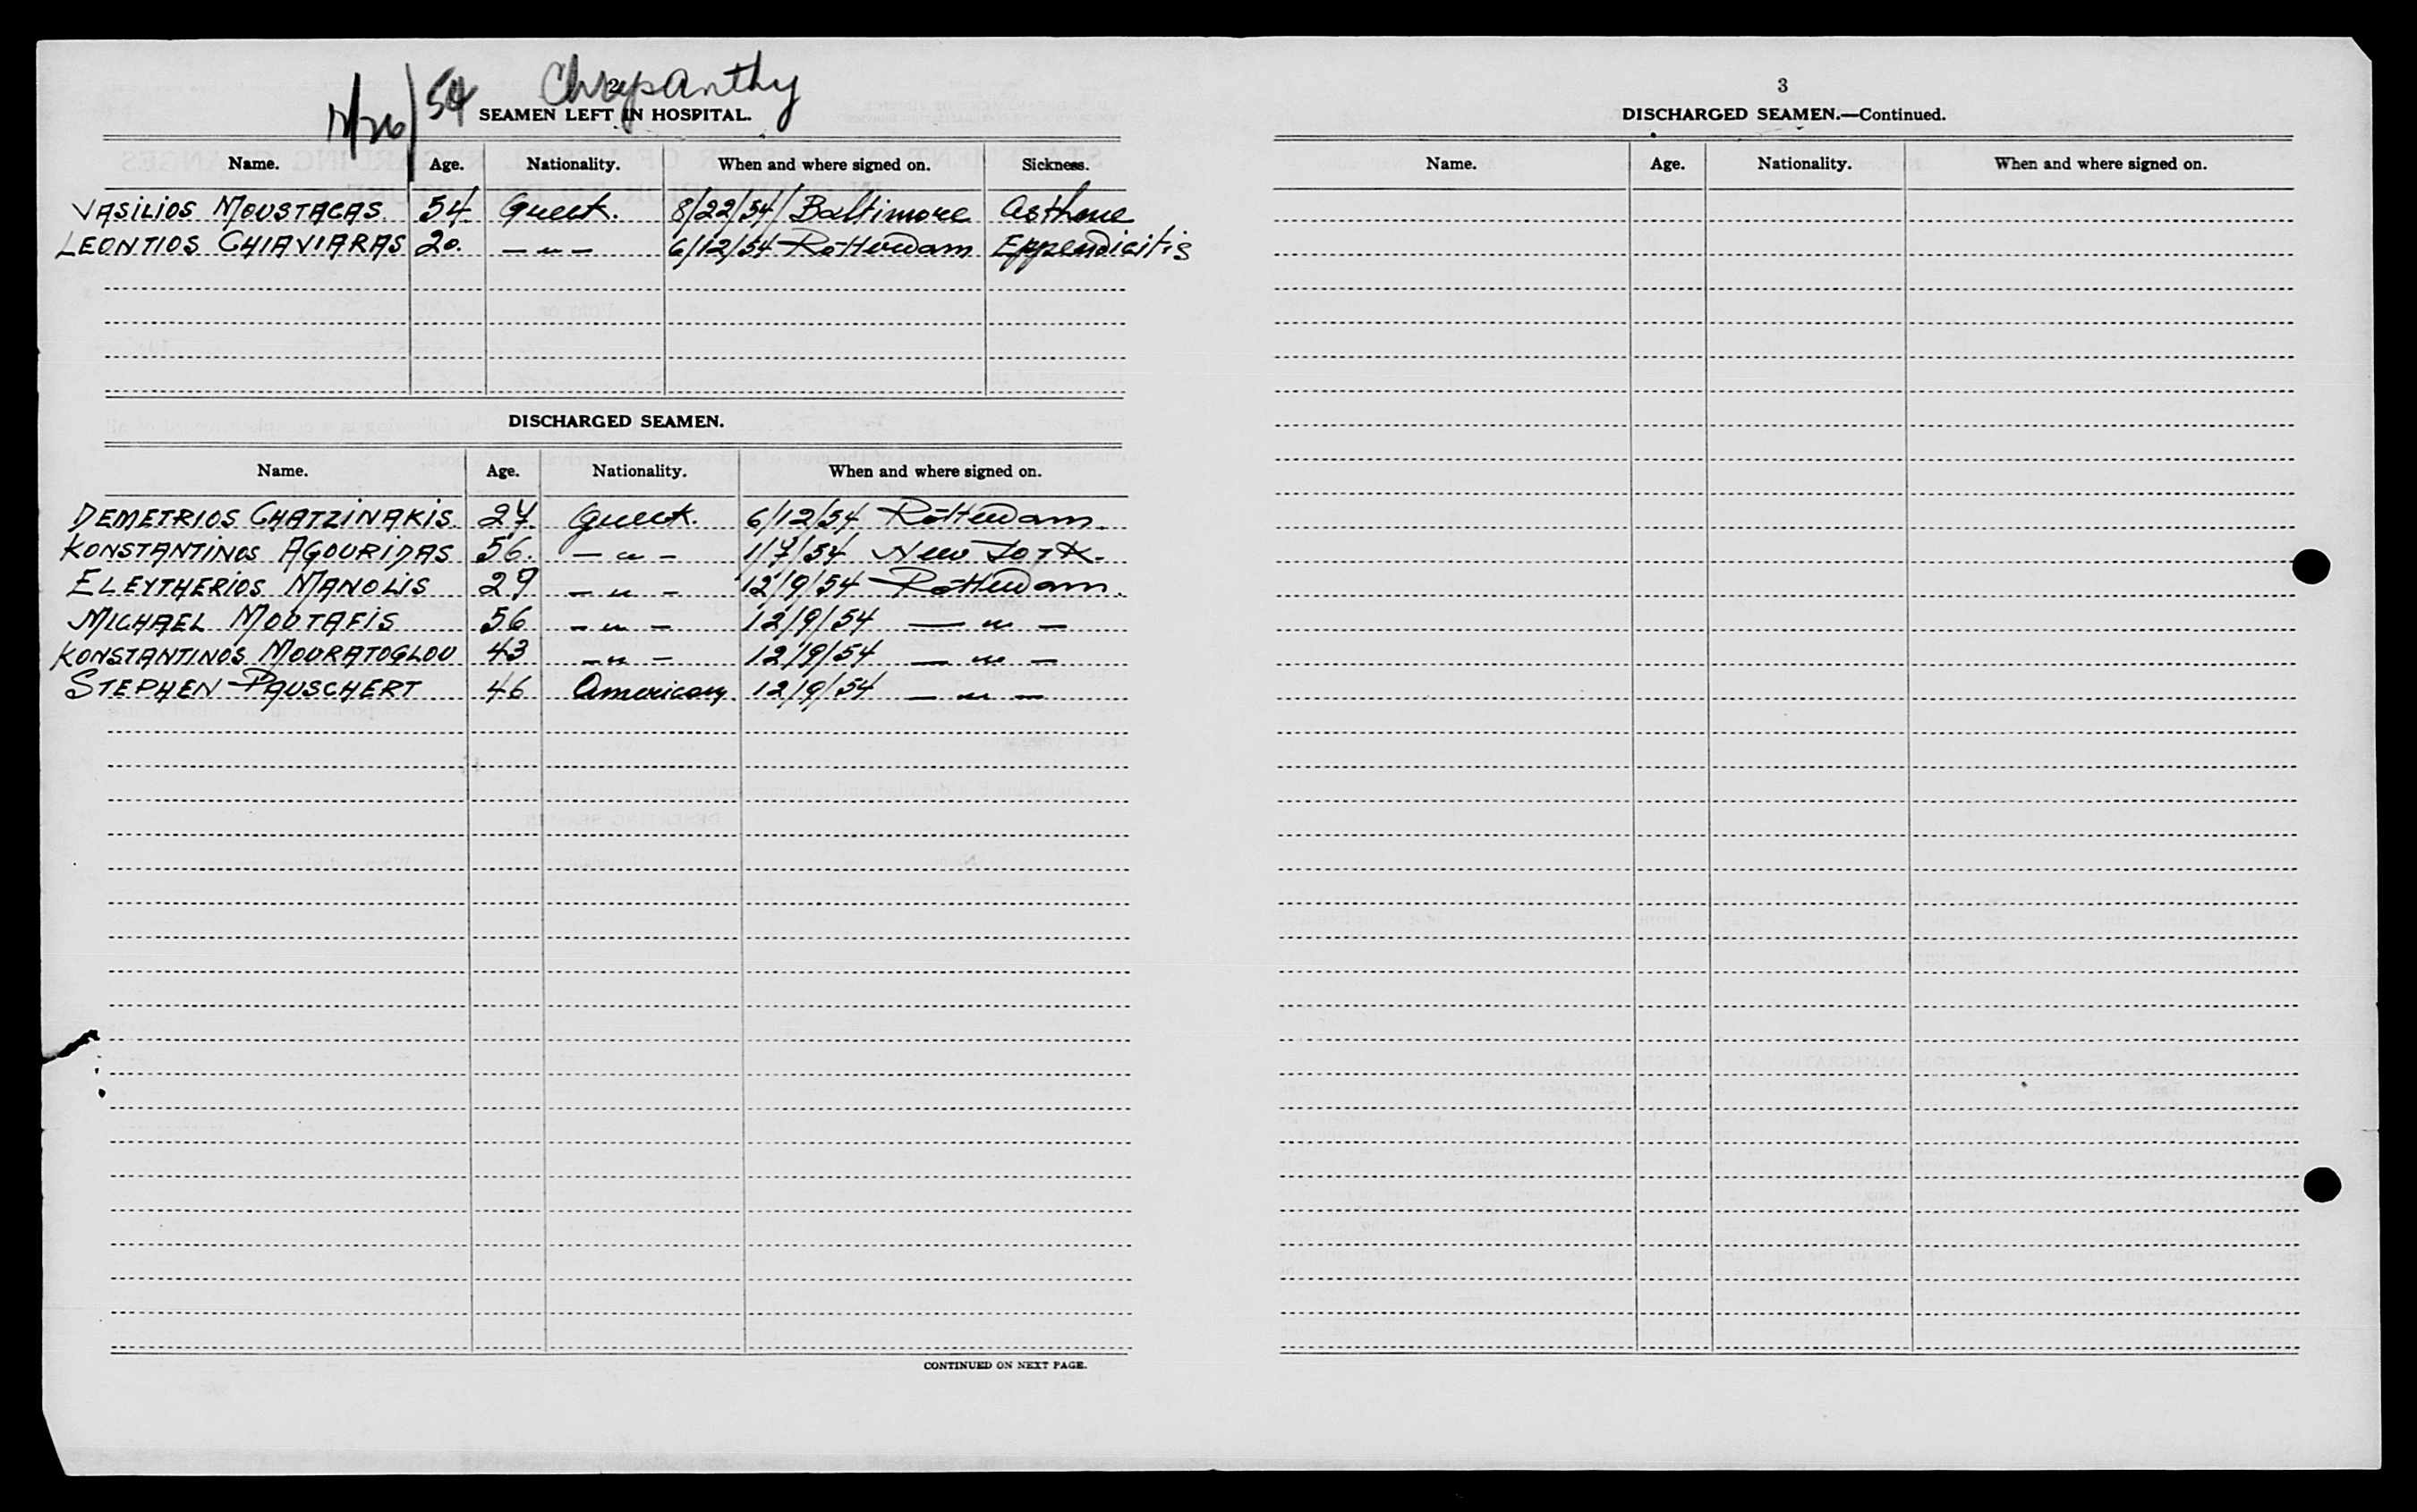 12/26/54 Chrysanthy
2
SEAMEN LEFT IN HOSPITAL.
Name. Age. Nationality. When and where signed on. Sickness.
VASILIOS MOUSTACAS 54 Greek. 8/22/54 Baltimore Asthme
LEONTIOS CHIAVIARAS 20. — " — 6/12/54 Rotterdam Eppendicitis
DISCHARGED SEAMEN.
Name. Age. Nationality. When and where signed on.
DEMETRIOS CHATZINAKIS. 27 Greek. 6/12/54 Rotterdam.
KONSTANTINOS AGOURIDAS 56. — " — 1/7/54 New York.
ELEYTHERIOS MANOLIS 29 — " — 12/9/54 Rotterdam.
MICHAEL MOUTAFIS 56 — " — 12/9/54 — " —
KONSTANTINOS MOURATOGLOU 43 — " — 12/9/54 — " —
STEPHEN PAUSCHERT 46 American 12/9/54 — " —
CONTINUED ON NEXT PAGE.
3
DISCHARGED SEAMEN.—Continued.
Name. Age. Nationality. When and where signed on.